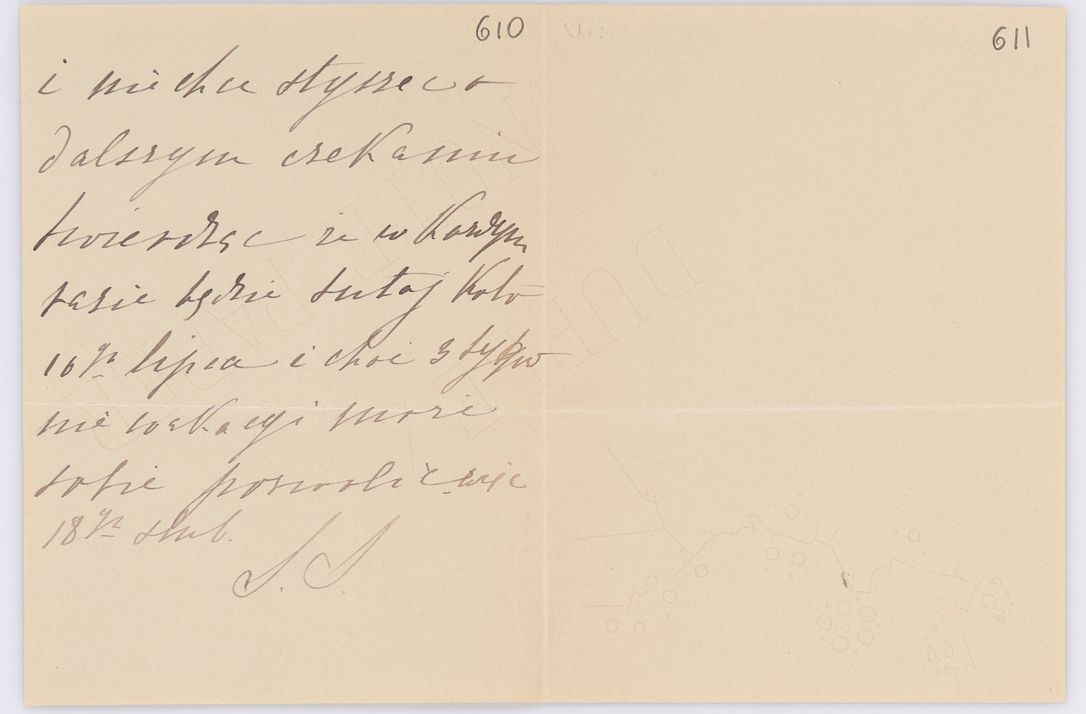 610
i nie chce słyszeć o
dalszym czekaniu
twierdząc że w każdym
razie będzie tutaj koło
16go lipca i choć 3 tygo
nie wakacyi może
sobie pozwolić więc
18go ślub.
S. S.
611